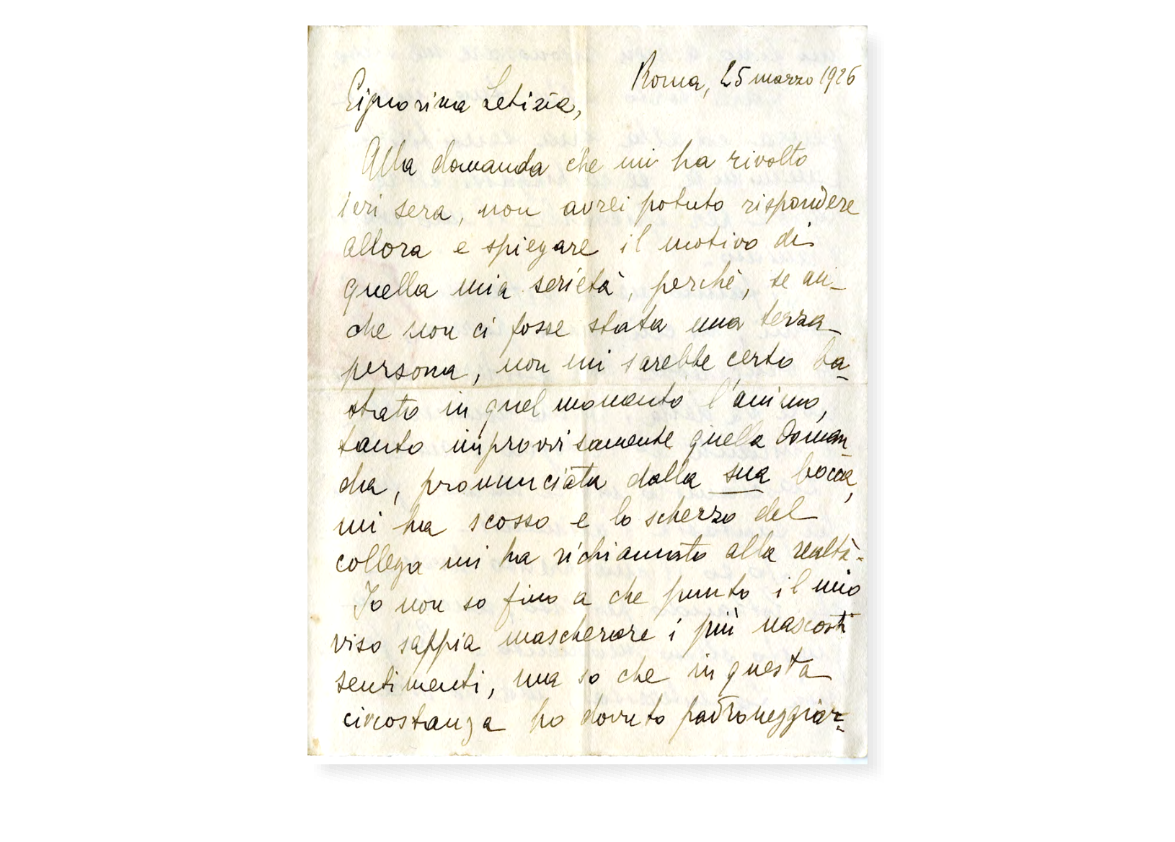 Roma, 25 marzo 1926
Signorina Letizia,
Alla domanda che mi ha rivolto
ieri sera, non avrei potuto rispondere
allora e spiegare il motivo di
quella mia serietà, perchè, se an-
che non ci fosse stata una terza
persona, non mi sarebbe certo ba-
stato in quel momento l'animo,
tanto improvvisamente quella doman-
da, pronunciata dalla sua bocca,
mi ha scosso e lo scherzo del
collega mi ha richiamato alla realtà.
Io non so fino a che punto il mio
viso sappia mascherare i più nascosti
sentimenti, ma so che in questa
circostanza ho dovuto padroneggiar-